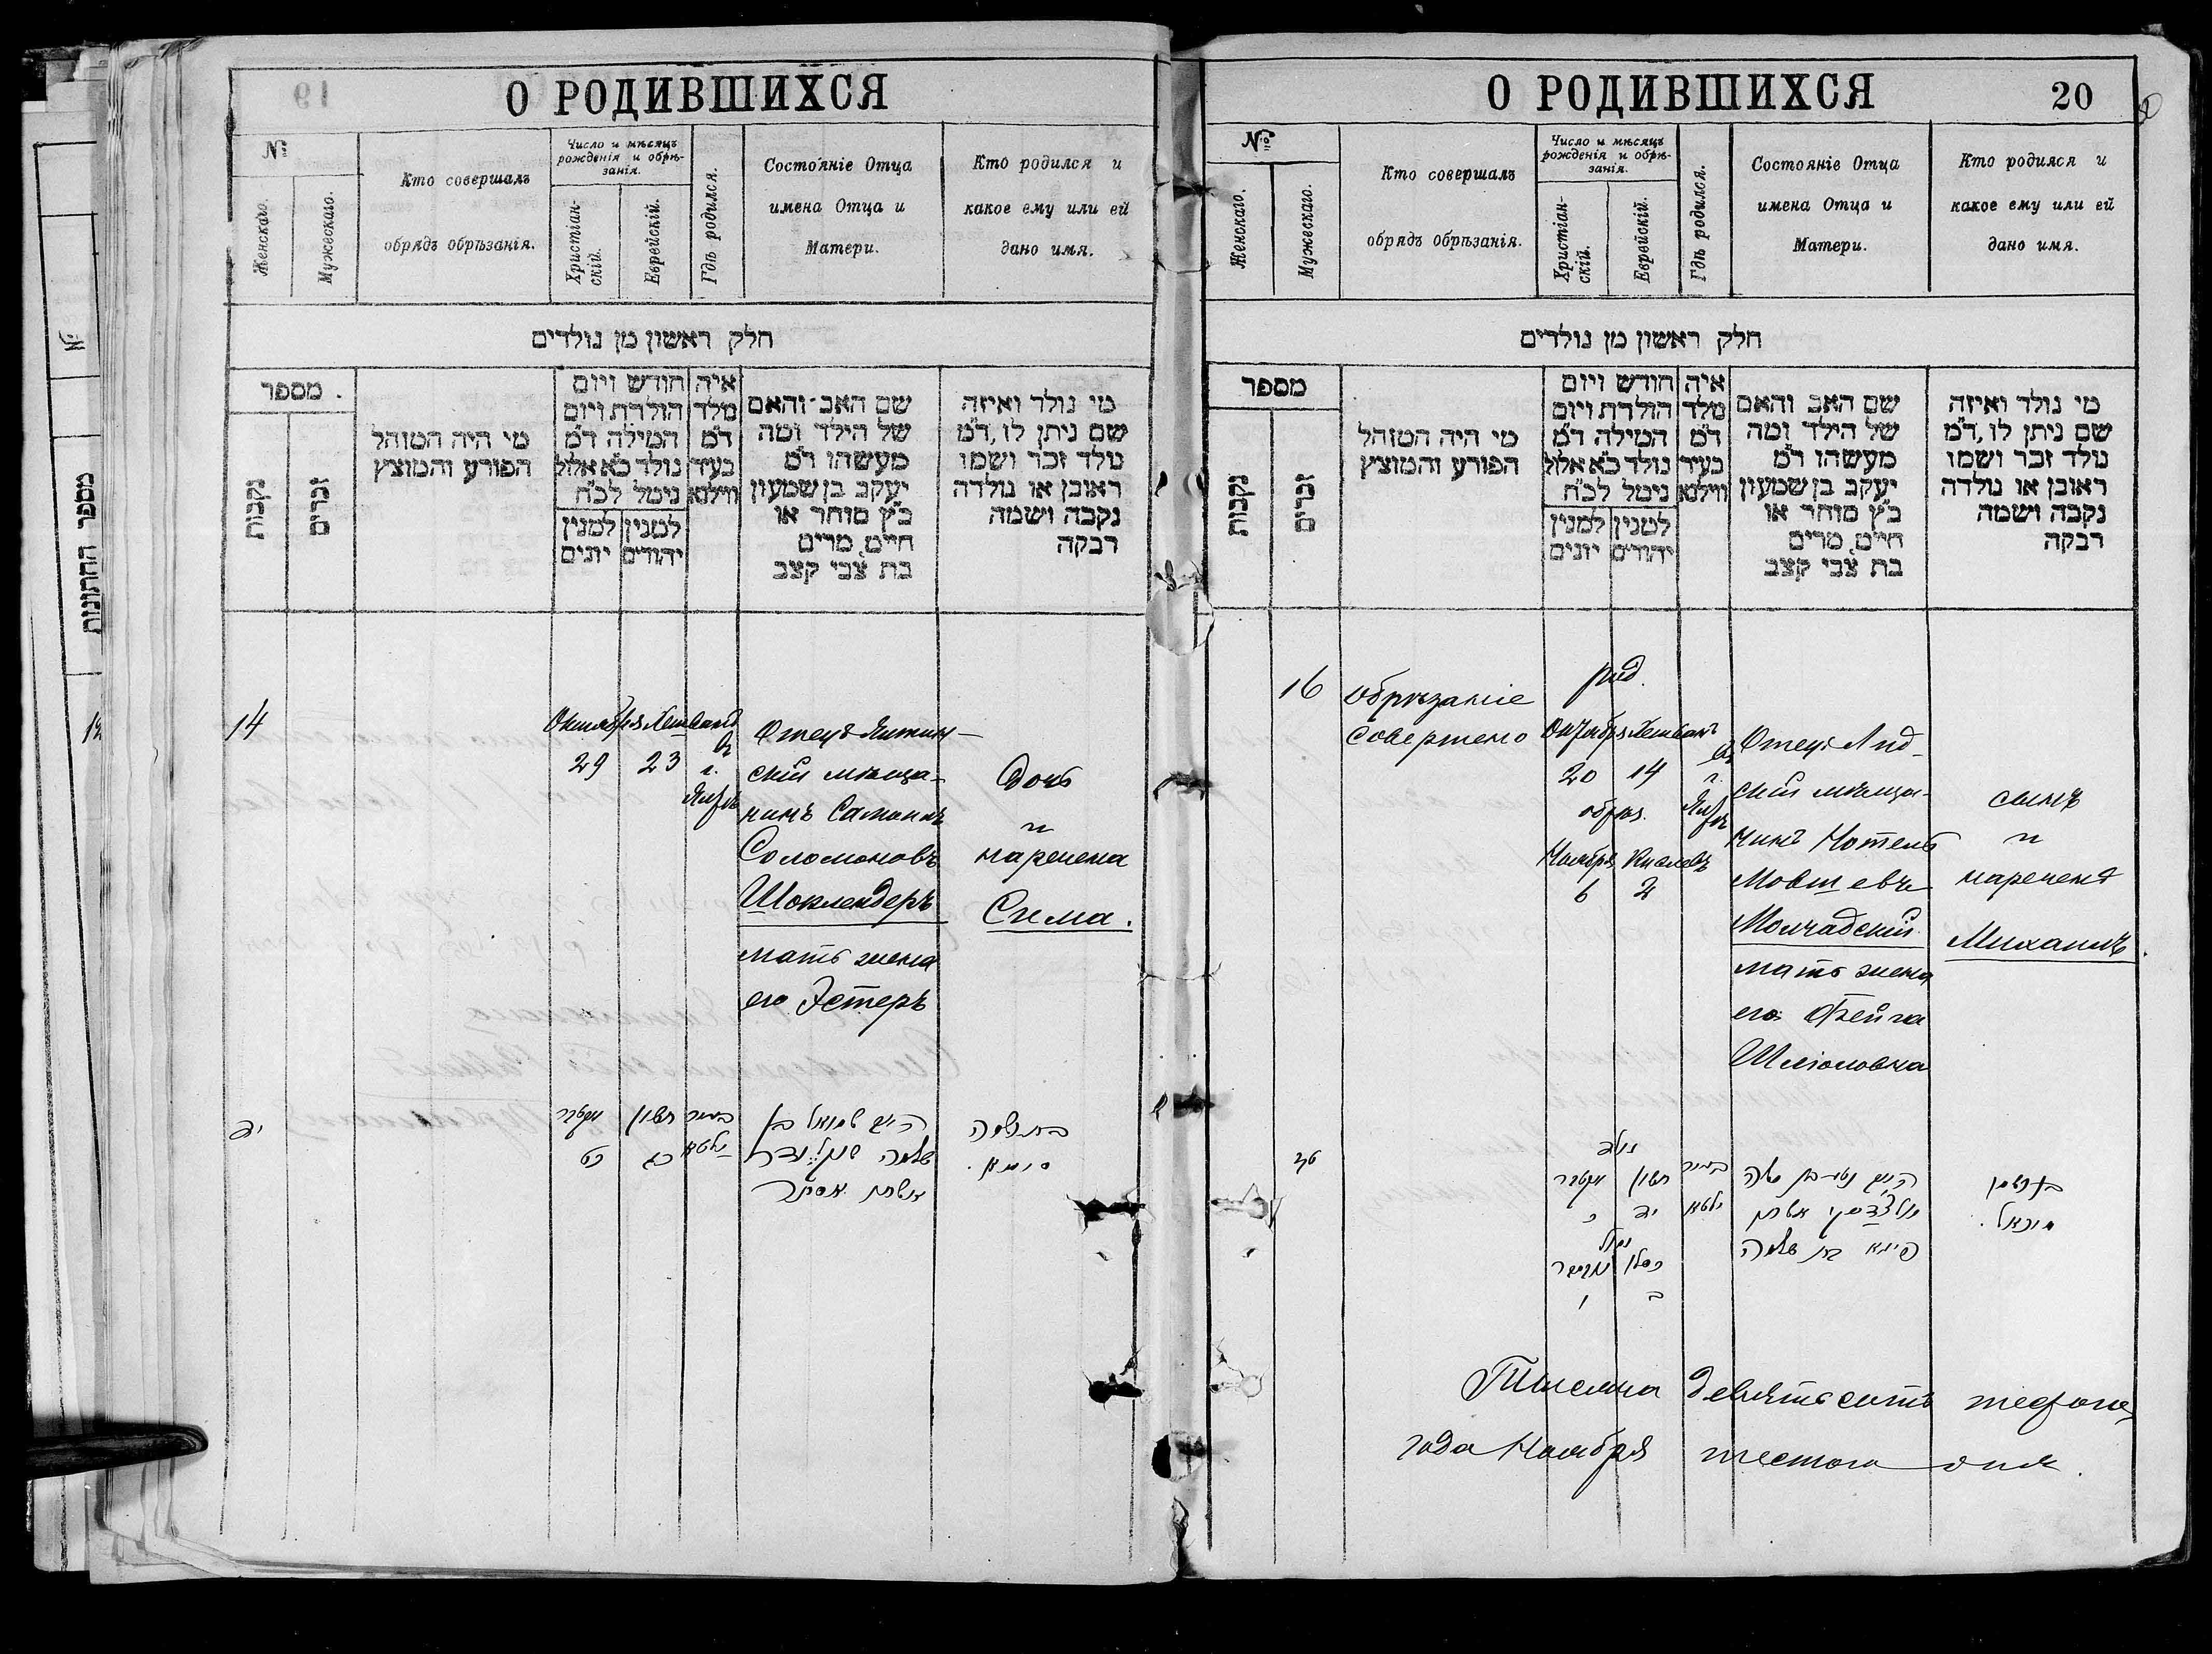 О РОДИВШИХСЯ
№
Женскаго.
Мужескаго.
Кто совершалъ
обрядъ обрѣзанія.
Число и мѣсяцъ
рожденія и обрѣ-
занія.
Христіан-
скій.
Еврейскій.
Гдѣ родился.
Состояніе Отца
имена Отца и
Матери.
Кто родился и
какое ему или ей
дано имя.
חלק ראשון מן נולדים
מספר
נקבות
זכרים
מי היה המוהל
הפורע והמוצץ
חודש ויום
הולדת ויום
המילה ד״מ
נולד כ״א אלול
נימל לכ״ח
למנין יהודים
למנין יונים
איה
מלד
ד״מ
בעיר
ווילנא
שם האב והאם
של הילד ומה
מעשהו ד״מ
יעקב בן שמעון
כ״ץ סוחר או
חי״ט, מרים
בת צבי קצב
מי נולד ואיזה
שם ניתן לו, ד״מ
נולד זכר ושמו
ראובן או נולדה
נקבה ושמה
רבקה
14
Октября Хешванъ
29 23
въ
г.
Отецъ Ялтин-
скій мѣща-
нинъ Самоилъ
Соломоновъ
Шоклендеръ
мать жена
его Эстеръ
Дочь
и
наречена
Сима.
יד
אקטבר חשון
כט כג
בעיר
יאלטא
ה״ה שמואל בן
שלמה שוקלענדר
אשתו אסתר
בת ושמה
סימא.
О РОДИВШИХСЯ
20
№
Женскаго.
Мужескаго.
Кто совершалъ
обрядъ обрѣзанія.
Число и мѣсяцъ
рожденія и обрѣ-
занія.
Христіан-
скій.
Еврейскій.
Гдѣ родился.
Состояніе Отца
имена Отца и
Матери.
Кто родился и
какое ему или ей
дано имя.
חלק ראשון מן נולדים
מספר
נקבות
זכרים
מי היה המוהל
הפורע והמוצץ
חודש ויום
הולדת ויום
המילה ד״מ
נולד כ״א אלול
נימל לכ״ח
למנין יהודים
למנין יונים
איה
מלד
ד״מ
בעיר
ווילנא
שם האב והאם
של הילד ומה
מעשהו ד״מ
יעקב בן שמעון
כ״ץ סוחר או
חי״ט, מרים
בת צבי קצב
מי נולד ואיזה
שם ניתן לו, ד״מ
נולד זכר ושמו
ראובן או נולדה
נקבה ושמה
רבקה
16
обрѣзаніе
совершено
род.
Октября Хешванъ
20 14
обрѣз.
Ноября Кислевъ
6 2
въ
г.
Отецъ Лид-
скій мѣща-
нинъ Нотель
Мовшевъ
Молчадскій
мать жена
его Фейга
Шліомовна
сынъ
и
нареченъ
Михаилъ.
טז
נולד
אקטבר חשון
כ יד
נימול
נאיאבר כסלו
ו ב
בעיר
יאלטא
משה
אשתו
פייגא בת שלמה
בן ושמו
מיכאל.
Тысяча девятьсотъ
года Ноября шестого дня.